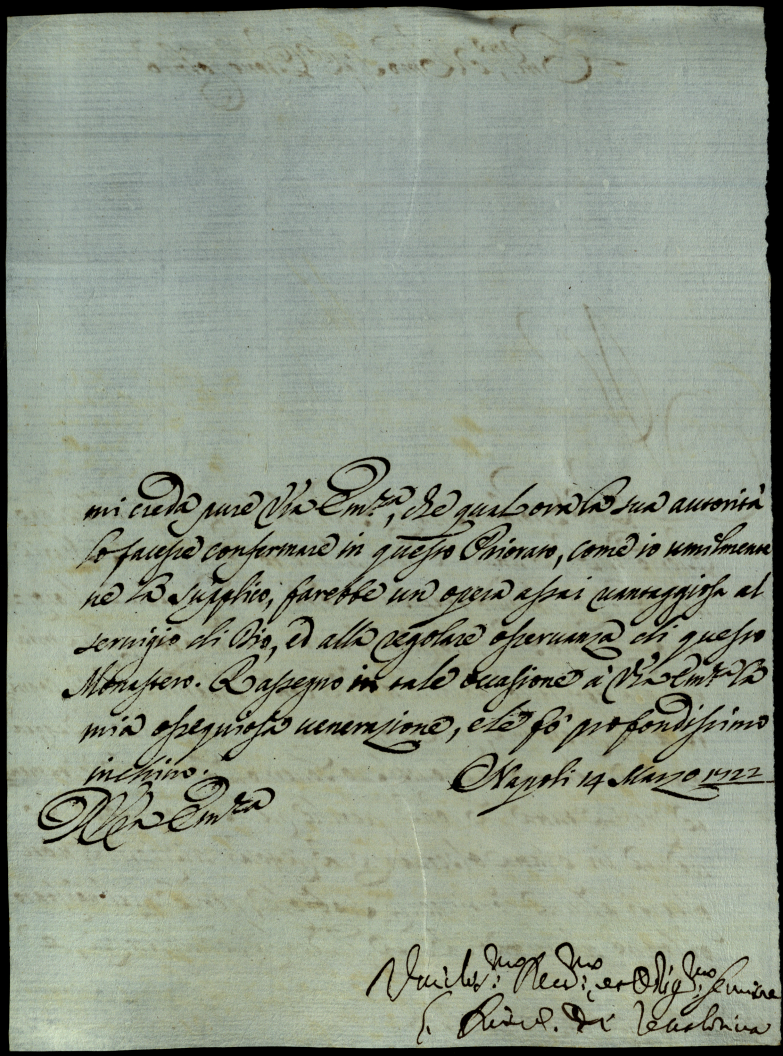 mi creda pure V'ra Em.za, che qual ora la sua autorità
lo facesse confermare in questo Priorato, come io umilmente
ne la supplico, farebbe un opera assai vantaggiosa al
servigio di Dio, ed alla regolare osservanza di questo
Monastero. Rassegno in tale occasione à V'ra Em.za la
mia ossequiosa venerazione, e le fò profondissimo
inchino. Napoli 14 Marzo 1722
Di V'ra Em.za
Um.mo Dev.mo et Oblig.mo Servitore